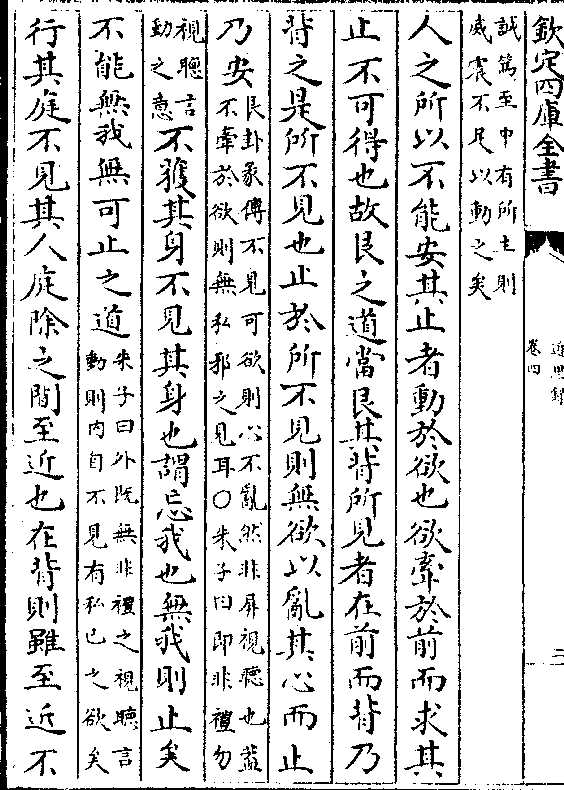 欽定四庫全書
近思錄
卷四
三
誠篤至中有所主則
威震不足以動之矣
人之所以不能安其止者動於欲也欲牽於前而求其
止不可得也故艮之道當艮其背所見者在前而背乃
背之是所不見也止於所不見則無欲以亂其心而止
乃安
艮卦彖傳不見可欲則心不亂然非屏視聽也蓋
不牽於欲則無私邪之見耳○朱子曰即非禮勿
視聽言
動之意
不獲其身不見其身也謂忘我也無我則止矣
不能無我無可止之道
朱子曰外既無非禮之視聽言
動則内自不見有私己之欲矣
行其庭不見其人庭除之間至近也在背則雖至近不